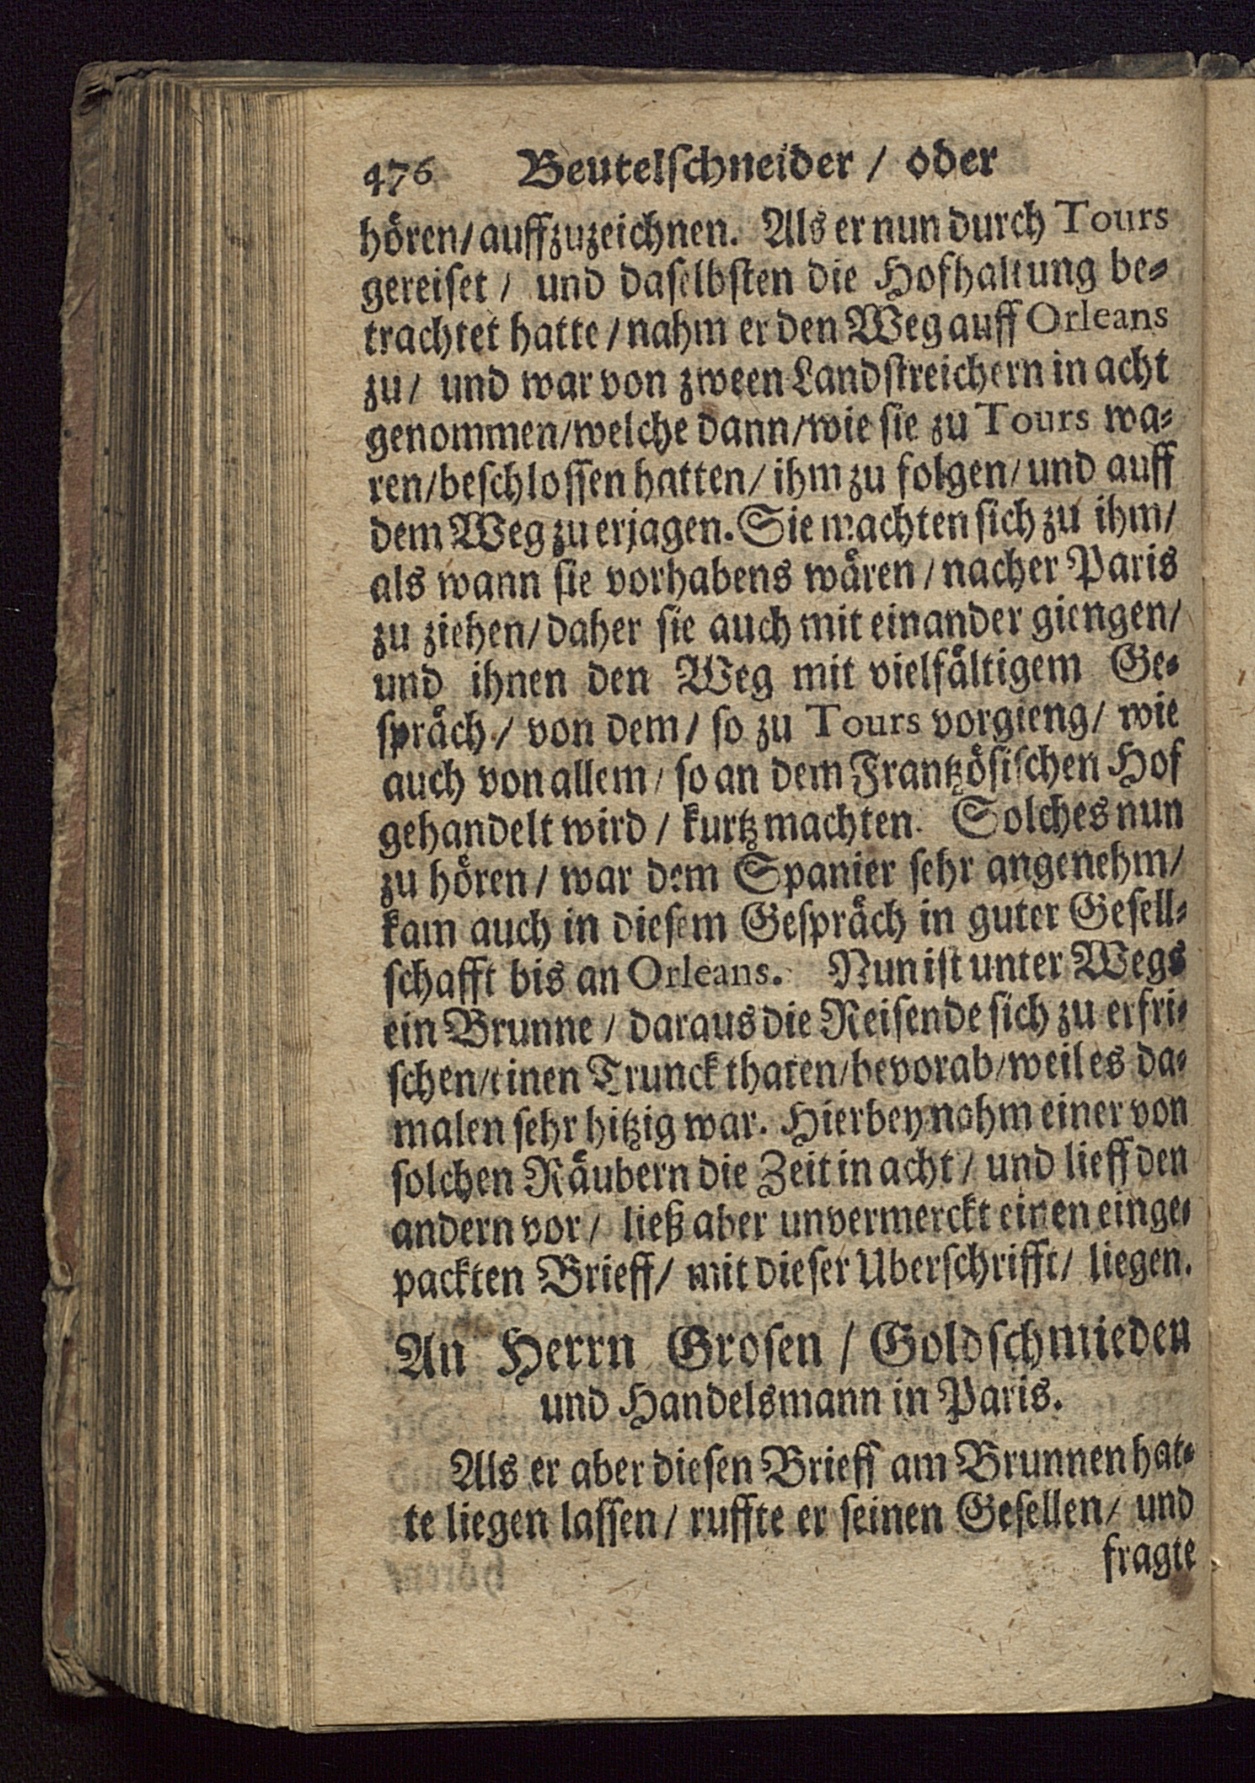 476 Beutelschneider / oder
hören/ auffzuzeichnen. Als er nun durch Tours
gereiset / und daselbsten die Hofhaltung be-
trachtet hatte / nahm er den Weg auff Orleans
zu / und war von zween Landstreichern in acht
genommen/welche dann/wie sie zu Tours wa-
ren/beschlossen hatten/ ihm zu folgen/ und auff
dem Weg zu erjagen. Sie machten sich zu ihm/
als wann sie vorhabens wären / nacher Paris
zu ziehen/ daher sie auch mit einander giengen/
und ihnen den Weg mit vielfältigem Ge-
spräch / von dem / so zu Tours vorgieng/ wie
auch von allem / so an dem Frantzösischen Hof
gehandelt wird / kurtz machten. Solches nun
zu hören / war dem Spanier sehr angenehm/
kam auch in diesem Gespräch in guter Gesell-
schafft bis an Orleans. Nun ist unter Wegs
ein Brunne / daraus die Reisende sich zu erfri-
schen/einen Trunck thaten/bevorab/weil es da-
malen sehr hitzig war. Hierbey nahm einer von
solchen Räubern die Zeit in acht / und lieff den
andern vor / ließ aber unvermerckt einen einge-
packten Brieff/ mit dieser Uberschrifft/ liegen.
An Herrn Grosen / Goldschmieden
und Handelsmann in Paris.
Als er aber diesen Brieff am Brunnen hat-
te liegen lassen / ruffte er seinen Gesellen/ und
fragte